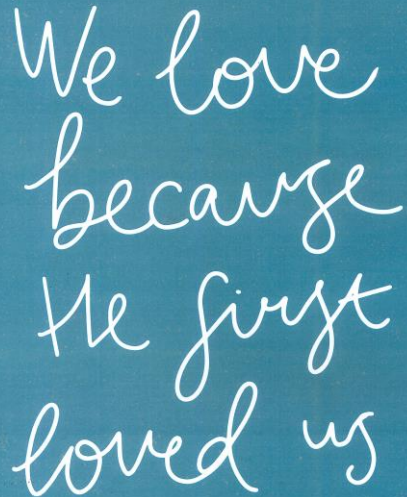 We love
because
He first
loved us